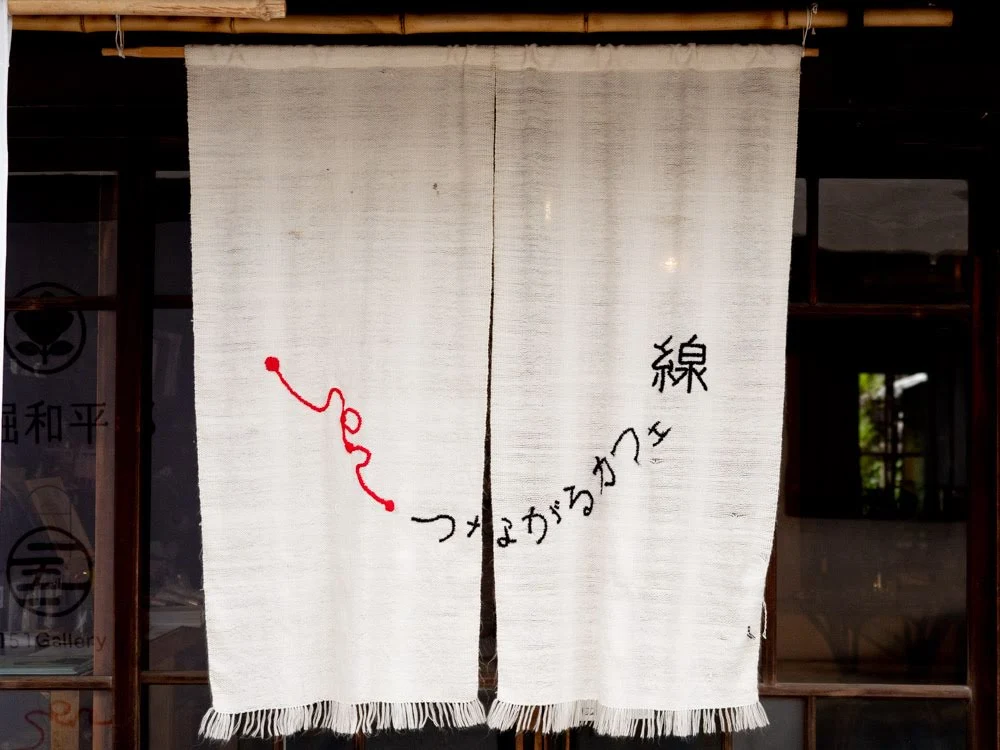 つながるカフェ
線
堀和平
151Gallery
sen